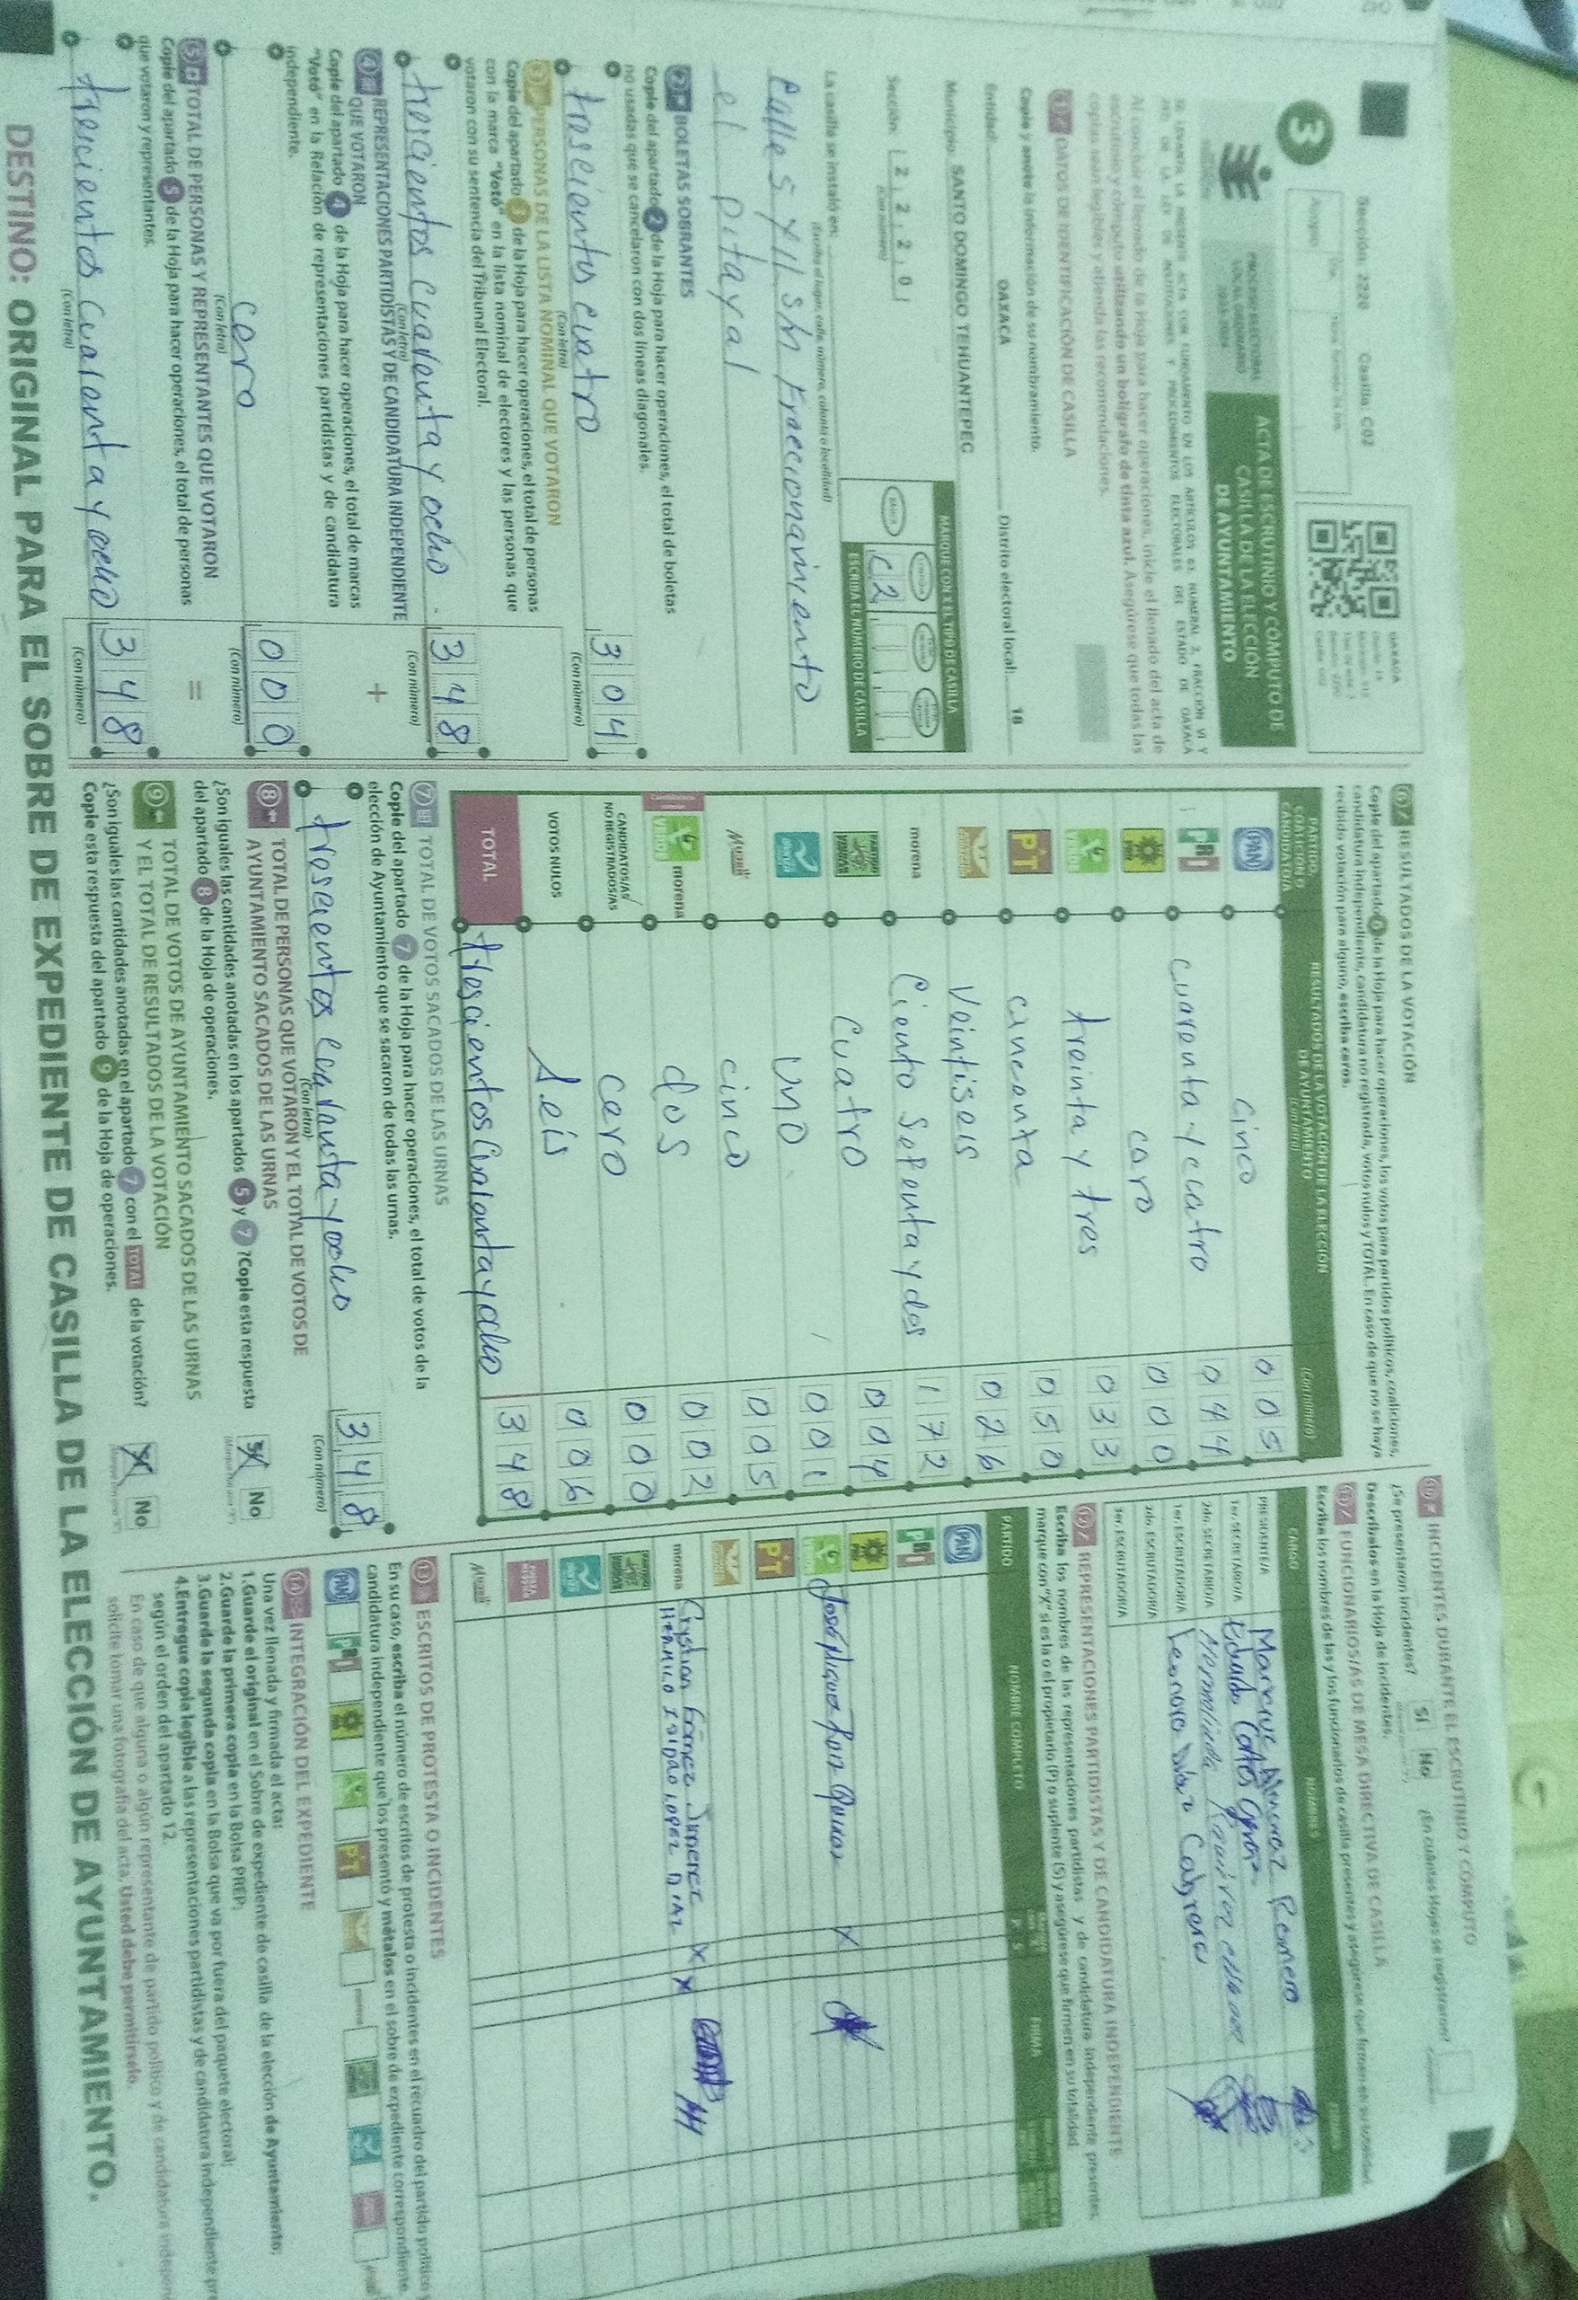 Sección: 2220 Casilla: C02
3
PROCESO ELECTORAL
LOCAL ORDINARIO
2023-2024
ACTA DE ESCRUTINIO Y CÓMPUTO DE
CASILLA DE LA ELECCIÓN
DE AYUNTAMIENTO
OAXACA
Al concluir el llenado de la Hoja para hacer operaciones, inicie el llenado del acta de
escrutinio y cómputo utilizando un bolígrafo de tinta azul. Asegúrese que todas las
copias sean legibles y atienda las recomendaciones.
1 DATOS DE IDENTIFICACIÓN DE CASILLA
Copie y anote la información de su nombramiento.
Entidad: OAXACA Distrito electoral local: 18
Municipio: SANTO DOMINGO TEHUANTEPEC
Sección: 2 2 2 0
(Con número)
MARQUE CON X EL TIPO DE CASILLA
C2
ESCRIBA EL NÚMERO DE CASILLA
La casilla se instaló en:
(Escriba el lugar, calle, número, colonia o localidad)
Calle 5 y 11 s/n Fraccionamiento
el pitayal
2 BOLETAS SOBRANTES
Copie del apartado 2 de la Hoja para hacer operaciones, el total de boletas
no usadas que se cancelaron con dos líneas diagonales.
trescientos cuatro 304
(Con letra) (Con número)
3 PERSONAS DE LA LISTA NOMINAL QUE VOTARON
Copie del apartado 3 de la Hoja para hacer operaciones, el total de personas
con la marca "Votó" en la lista nominal de electores y las personas que
votaron con su sentencia del Tribunal Electoral.
trescientos cuarenta y ocho 348
(Con letra) (Con número)
4 REPRESENTACIONES PARTIDISTAS Y DE CANDIDATURA INDEPENDIENTE
QUE VOTARON +
Copie del apartado 4 de la Hoja para hacer operaciones, el total de marcas
"Votó" en la Relación de representaciones partidistas y de candidatura
independiente.
cero 000
(Con letra) (Con número)
5 TOTAL DE PERSONAS Y REPRESENTANTES QUE VOTARON =
Copie del apartado 5 de la Hoja para hacer operaciones, el total de personas
que votaron y representantes.
trescientos cuarenta y ocho 348
(Con letra) (Con número)
6 RESULTADOS DE LA VOTACIÓN
Copie del apartado 6 de la Hoja para hacer operaciones, los votos para partidos políticos, coaliciones,
candidatura independiente, candidatura no registrada, votos nulos y TOTAL. En caso de que no se haya
recibido votación para alguno, escriba ceros.
PARTIDO,
COALICIÓN O
CANDIDATO/A
RESULTADOS DE LA VOTACIÓN DE LA ELECCIÓN
DE AYUNTAMIENTO
(Con letra) (Con número)
PAN cinco 005
PRI cuarenta y cuatro 044
PRD cero 000
VERDE treinta y tres 033
PT cincuenta 050
veintiseis 026
morena Ciento Setenta y dos 172
cuatro 004
uno 001
Mujer cinco 005
VERDE morena dos 002
CANDIDATOS/AS
NO REGISTRADOS/AS cero 000
VOTOS NULOS seis 006
TOTAL trescientos cuarenta y ocho 348
7 TOTAL DE VOTOS SACADOS DE LAS URNAS
Copie del apartado 7 de la Hoja para hacer operaciones, el total de votos de la
elección de Ayuntamiento que se sacaron de todas las urnas.
trescientos cuarenta y ocho 348
(Con letra) (Con número)
8 TOTAL DE PERSONAS QUE VOTARON Y EL TOTAL DE VOTOS DE
AYUNTAMIENTO SACADOS DE LAS URNAS
¿Son iguales las cantidades anotadas en los apartados 5 y 7? Copie esta respuesta
del apartado 8 de la Hoja de operaciones.
Sí No
9 TOTAL DE VOTOS DE AYUNTAMIENTO SACADOS DE LAS URNAS
Y EL TOTAL DE RESULTADOS DE LA VOTACIÓN
¿Son iguales las cantidades anotadas en el apartado 7 con el TOTAL de la votación?
Copie esta respuesta del apartado 9 de la Hoja de operaciones.
Sí No
10 INCIDENTES DURANTE EL ESCRUTINIO Y CÓMPUTO
¿Se presentaron incidentes? Sí No ¿En cuántas Hojas se registraron?
Descríbalos en la Hoja de incidentes.
11 FUNCIONARIOS/AS DE MESA DIRECTIVA DE CASILLA
Escriba los nombres de las y los funcionarios de casilla presentes y asegúrese que firmen en su totalidad.
CARGO NOMBRES FIRMAS
PRESIDENTE/A Romero
1er. SECRETARIO/A
2do. SECRETARIO/A
1er. ESCRUTADOR/A Leonora Díaz Cabrera
2do. ESCRUTADOR/A
3er. ESCRUTADOR/A
12 REPRESENTACIONES PARTIDISTAS Y DE CANDIDATURA INDEPENDIENTE
Escriba los nombres de las representaciones partidistas y de candidatura independiente presentes,
marque con "X" si es la o el propietario (P) o suplente (S) y asegúrese que firmen en su totalidad.
PARTIDO NOMBRE COMPLETO P S FIRMA
PAN
PRI
PRD
VERDE X
PT
morena Crystian Gómez Jimenez X
HERMILO ISIDRO LOPEZ DIAZ X
Mujer
13 ESCRITOS DE PROTESTA O INCIDENTES
En su caso, escriba el número de escritos de protesta o incidentes en el recuadro del partido político
candidatura independiente que los presentó y métalos en el sobre de expediente correspondiente.
PAN PRI PRD VERDE PT morena
14 INTEGRACIÓN DEL EXPEDIENTE
Una vez llenada y firmada el acta:
1.Guarde el original en el Sobre de expediente de casilla de la elección de Ayuntamiento;
2.Guarde la primera copia en la Bolsa PREP;
3.Guarde la segunda copia en la Bolsa que va por fuera del paquete electoral;
4.Entregue copia legible a las representaciones partidistas y de candidatura independiente
según el orden del apartado 12.
En caso de que alguna o algún representante de partido político y de candidatura
solicite tomar una fotografía del acta, usted debe permitírselo.
DESTINO: ORIGINAL PARA EL SOBRE DE EXPEDIENTE DE CASILLA DE LA ELECCIÓN DE AYUNTAMIENTO.